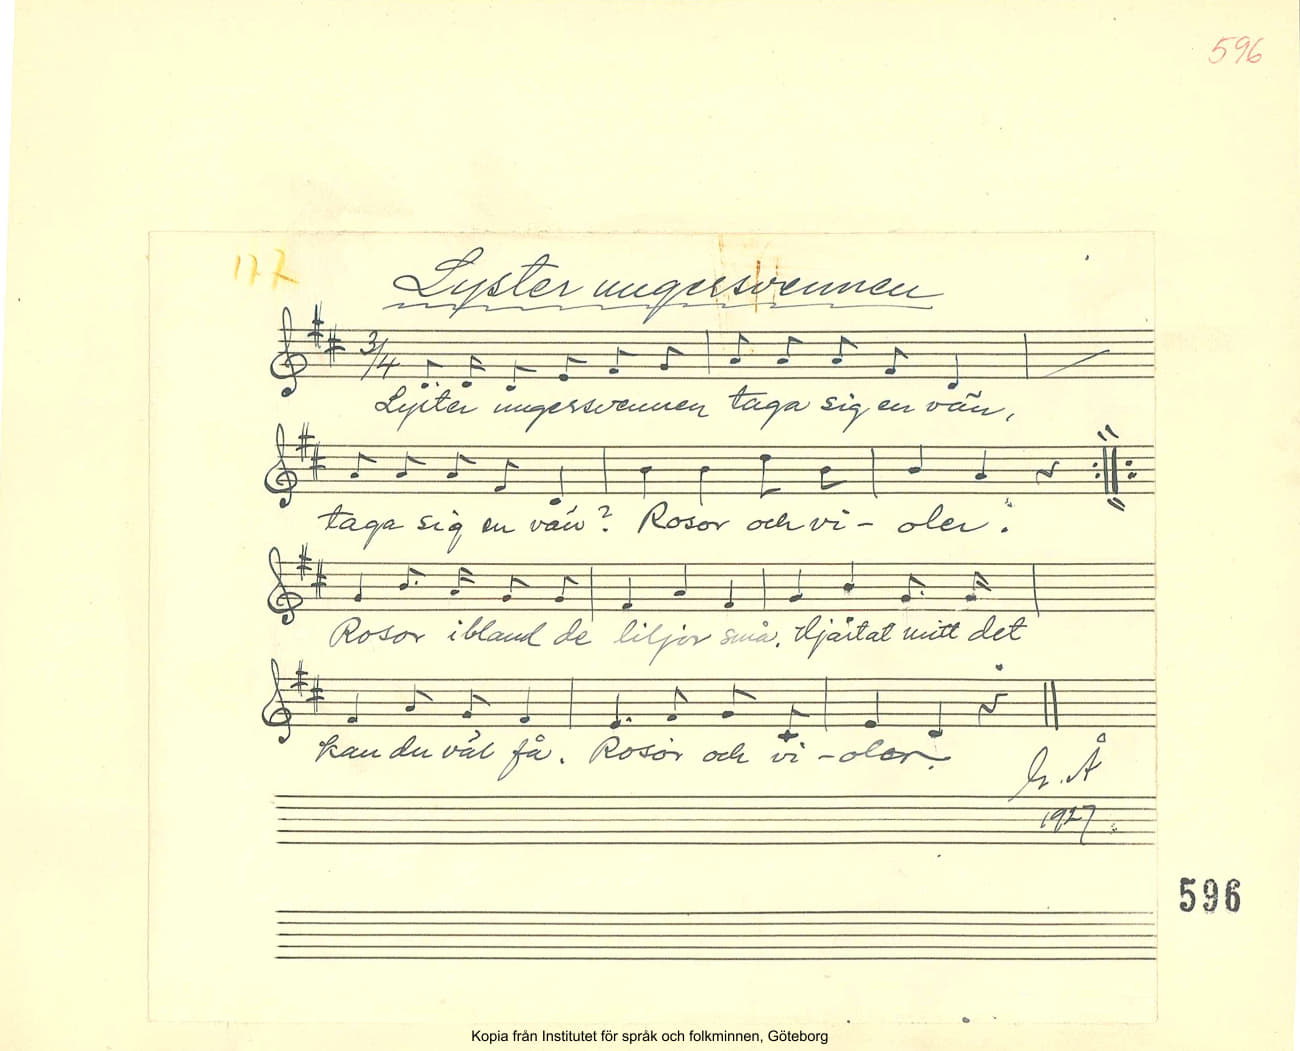 596
177
Lyster ungersvennen
3/4
Lyster ungersvennen taga sig en vän,
taga sig en vän? Rosor och vi- oler.
Rosor ibland de liljor små. Hjärtat mitt det
kan du väl få. Rosor och vi-oler.
G. Å
1927
596
Kopia från Institutet för språk och folkminnen, Göteborg